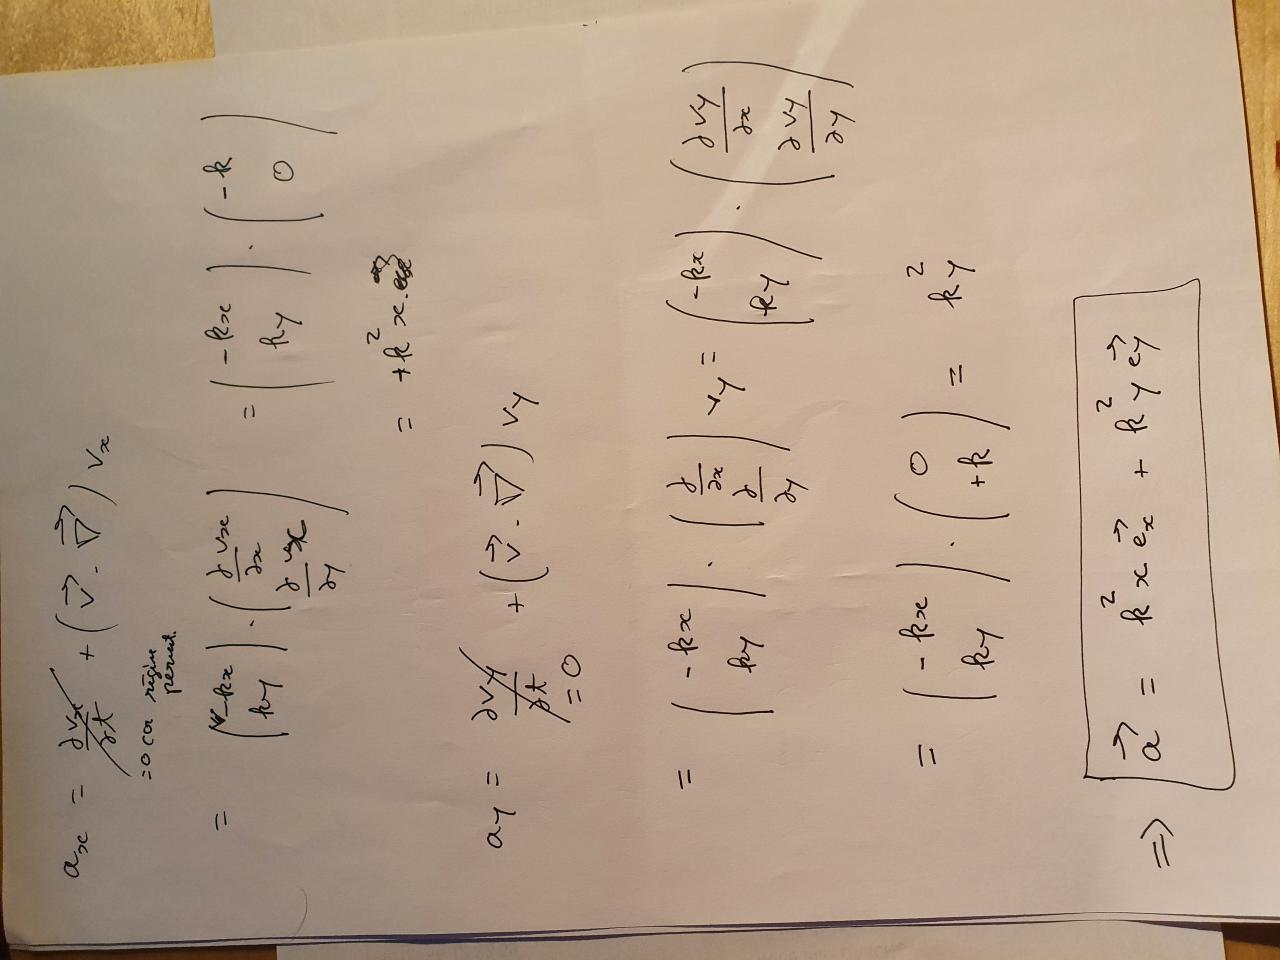 aₓ = ∂vₓ/∂t + (v⃗ · ∇⃗) vₓ
=0 car régime permat.
= (-kx ; ky) · (∂vx/∂x ; ∂vx/∂y) = (-kx ; ky) · (-k ; 0)
= +k² x.
ay = ∂vy/∂t + (v⃗ · ∇⃗) vy
=0
= (-kx ; ky) · (∂/∂x ; ∂/∂y) vy = (-kx ; ky) · (∂vy/∂x ; ∂vy/∂y)
= (-kx ; ky) · (0 ; +k) = k²y
=> a⃗ = k² x e⃗x + k² y e⃗y